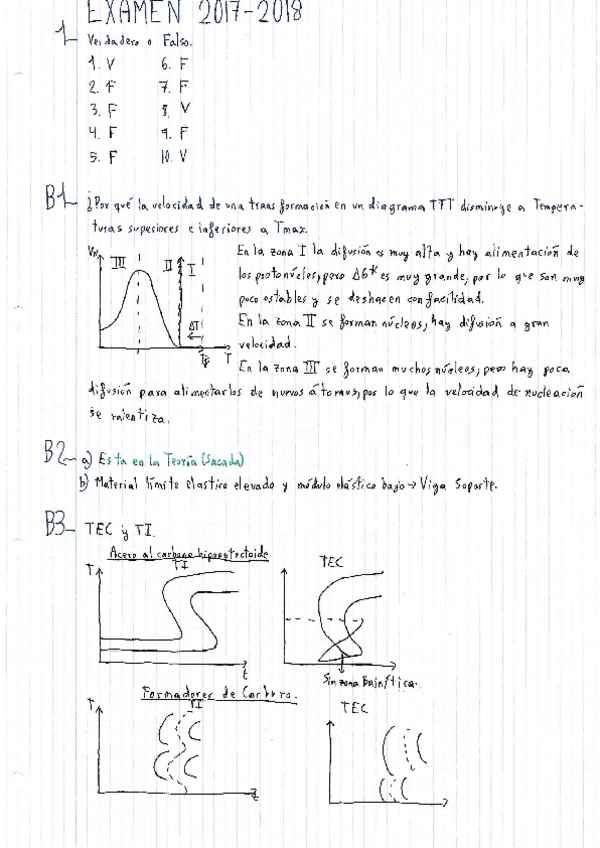 EXAMEN 2017-2018
1- Verdadero o Falso.
1. V 6. F
2. F 7. F
3. F 8. V
4. F 9. F
5. F 10. V
B1- ¿Por qué la velocidad de una transformación en un diagrama TTT disminuye a Tempera-
turas superiores e inferiores a Tmax.
VN III II I ΔT TE T
En la zona I la difusión es muy alta y hay alimentación de
los protonúcleos, pero ΔG* es muy grande, por lo que son muy
poco estables y se deshacen con facilidad.
En la zona II se forman núcleos, hay difusión a gran
velocidad.
En la zona III se forman muchos núcleos, pero hay poca
difusión para alimentarlos de nuevos átomos, por lo que la velocidad de nucleación
se ralentiza.
B2- a) Esta en la Teoría (Sacada)
b) Material límite elastico elevado y módulo elástico bajo → Viga Soporte.
B3- TEC y TI.
Acero al carbono hipoeutectoide
TI TEC
T t
Sin zona Bainítica.
Formadores de Carburo.
TI TEC
T t